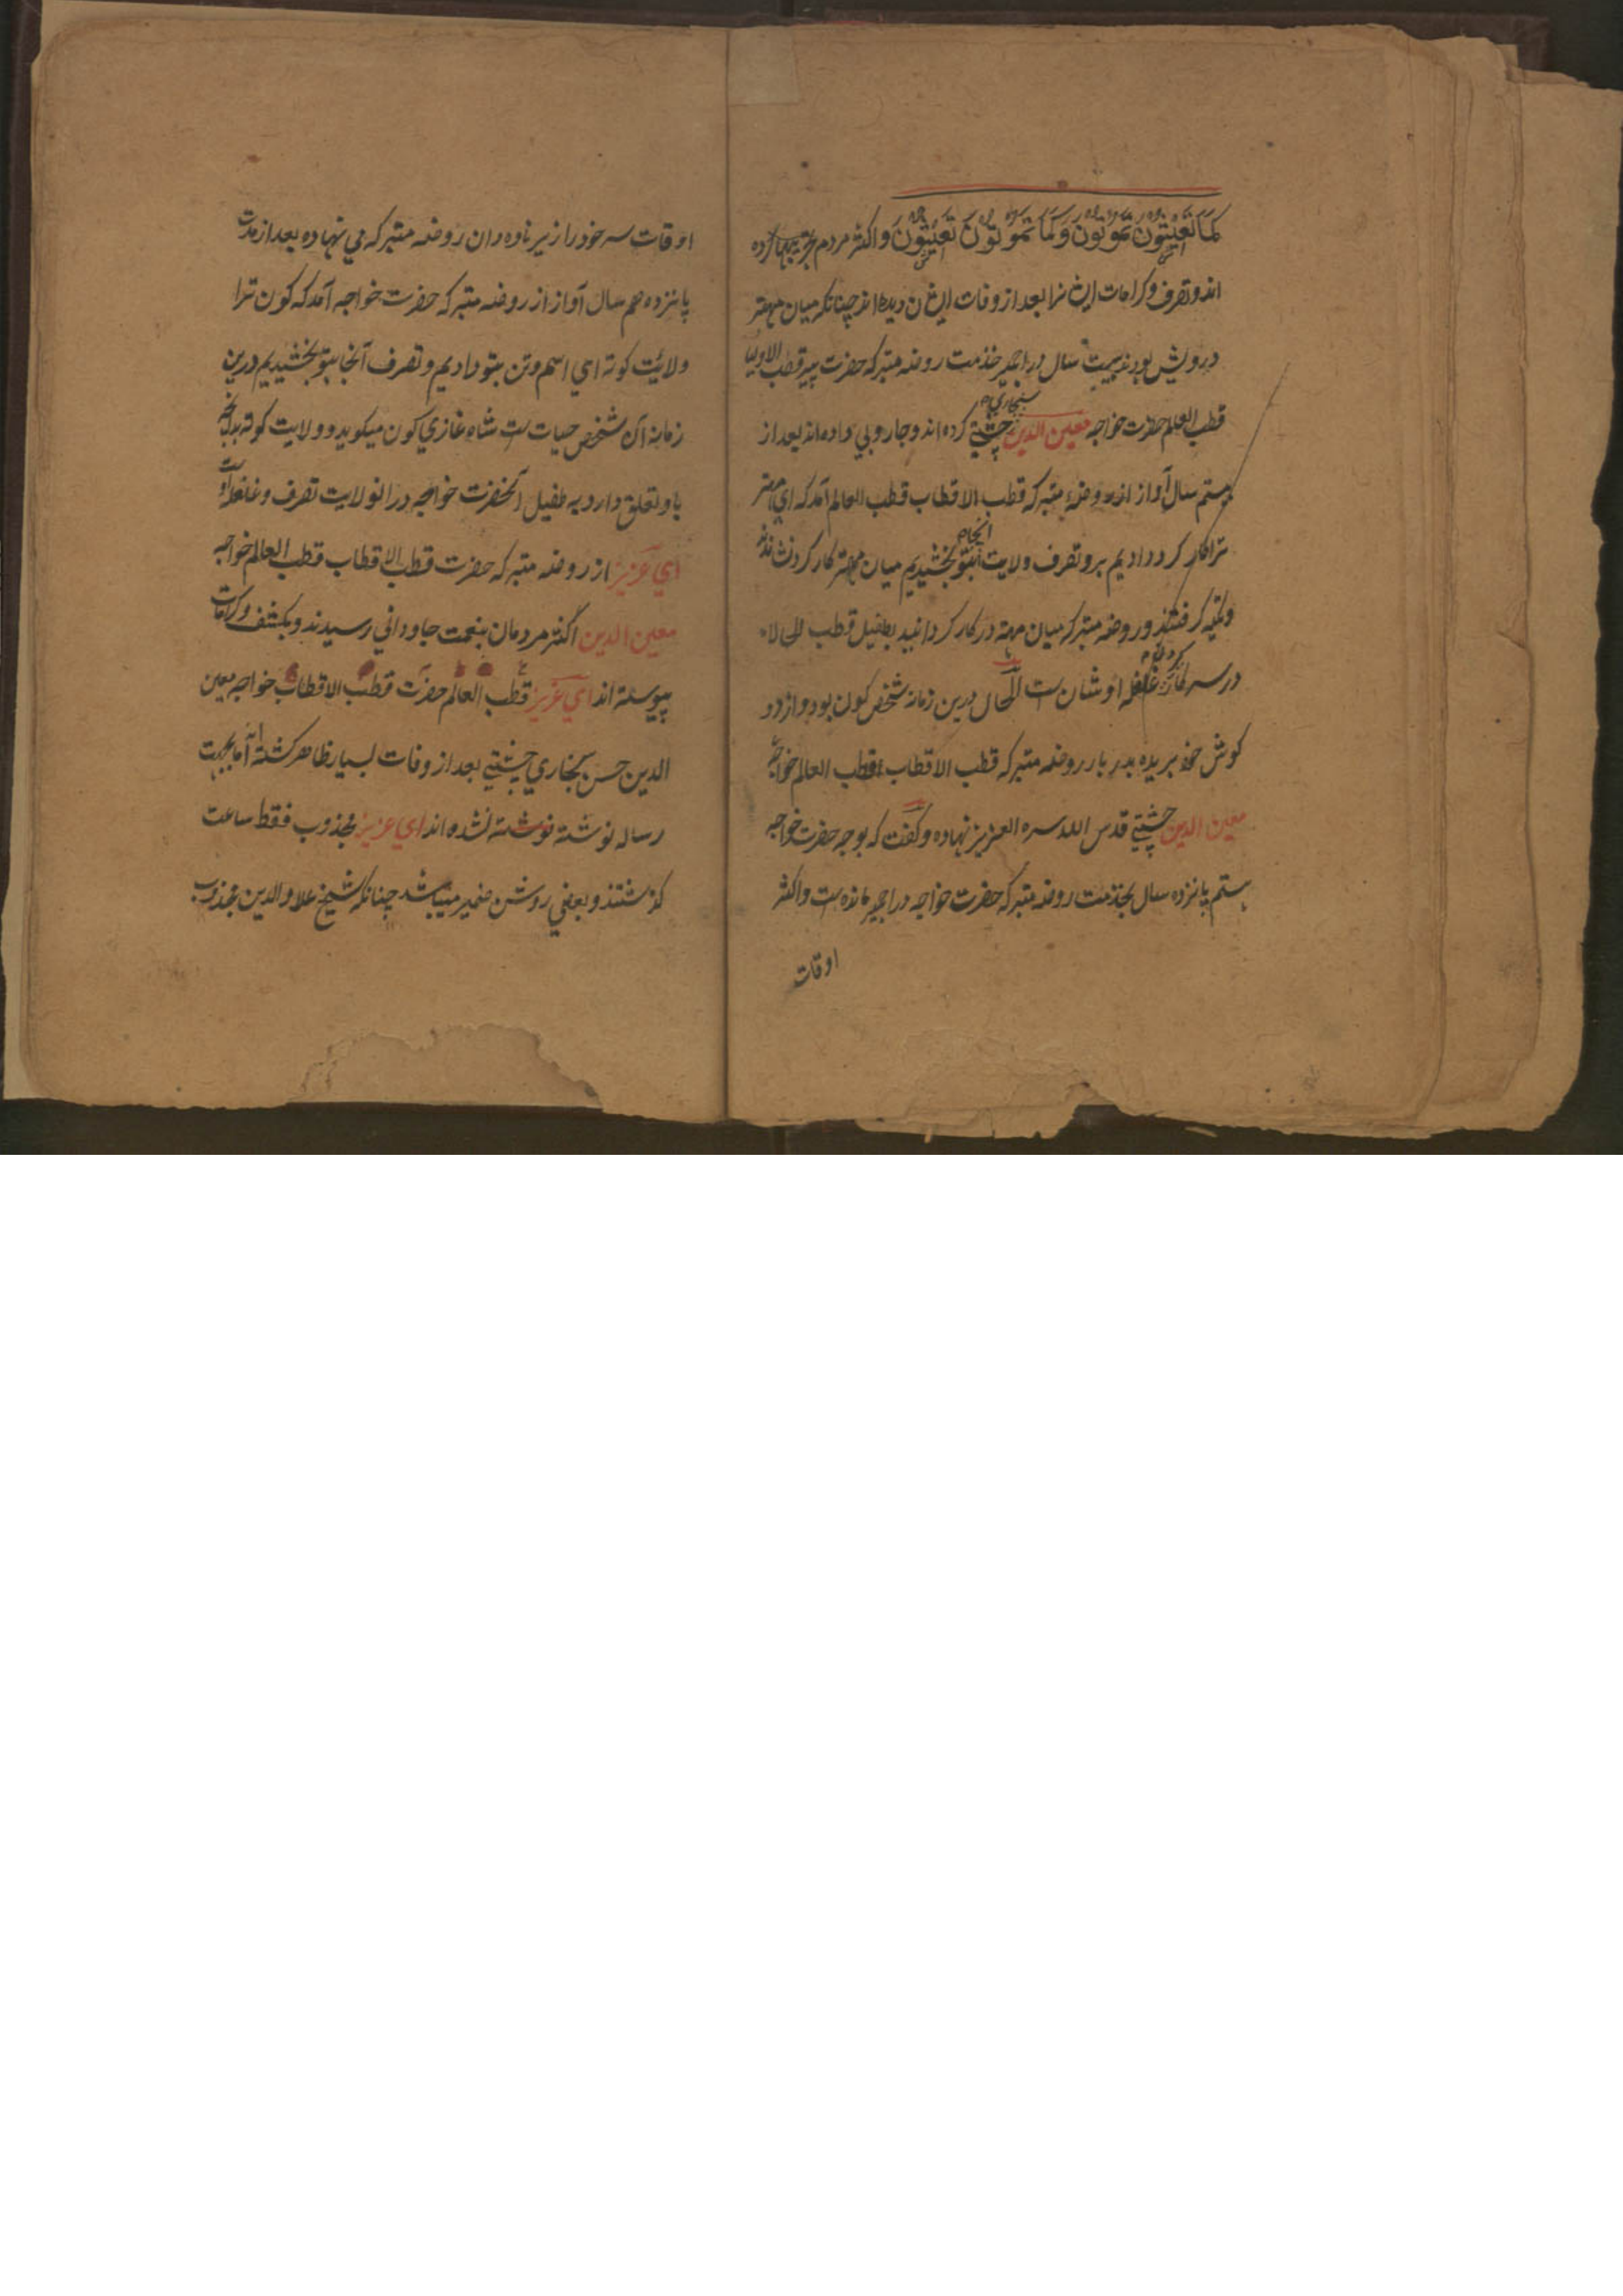 کَمَا تَعِیْشُونَ تَمُوتُونَ وَکَمَا تَمُوتُونَ تَعِیْشُونَ واکثر مردم
اند وتصرف وکرامات ایشانرا بعد از وفات ایشان دیده اند چنانکه میان مهتر
درویش بودند بیست سال در اجمیر خذمت روضه متبرکه حضرت پیر قطب الاولیا
سنجاری
قطب العلم حضرت خواجه معین الدین چشتی کرده اند وجاروبی داده اند بعد از
بیستم سال آواز از روضهٔ متبرکه قطب الاقطاب قطب العالم آمد که ای مهتر
انجا
ترا کار کرد دادیم برو تصرف ولایت بتو بخشیدیم میان مهتر کار کردن
وتکیه گرفتند ور وضه متبرکه میان مهته در کار گردانید بطفیل قطب الحالا
در سرکار غلغله اوشان ست الحال درین زمانه شخص کون بود واز دو
کوش خود بریده بدر بار روضه متبرکه قطب الاقطاب قطب العالم خواجه
معین الدین چشتی قدس الله سره العزیز نهاده وگفت که بوجه حضرت خواجه
بستم پانزده سال بخذمت روضه متبرکه حضرت خواجه در اجمیر مانده ست واکثر
اوقات
اوقات سر خود را زیر ناوه دان روضه متبرکه می نهاده بعد از مدت
پانزدهم سال آواز از روضه متبرکه حضرت خواجه آمد که کون ترا
ولایت کوته ای اسم وتن بتو دادیم وتصرف آنجا بتو بخشیدیم درین
زمانه آن شخص حیات ست شاه غازی کون میکویند وولایت کوته
باو تعلق دارد به طفیل آنحضرت خواجه در انولایت تصرف وغلغله او ست
ای عزیز از روضه متبرکه حضرت قطب الاقطاب قطب العالم خواجه
معین الدین اکثر مردمان بنعمت جاودانی رسیدند وبکشف وکرامات
پیوسته اند ای عزیز قطب العالم حضرت قطب الاقطاب خواجه معین
الدین حسن سنجاری چشتی بعد از وفات بسیار ظاهر کشته اند اما بجهت
رساله نوشته نوشته نشده اند ای عزیز مجذوب فقط ساعت
کذشتند وبعضی روشن ضمیر میباشد چنانکه شیخ علاو الدین مجذوب